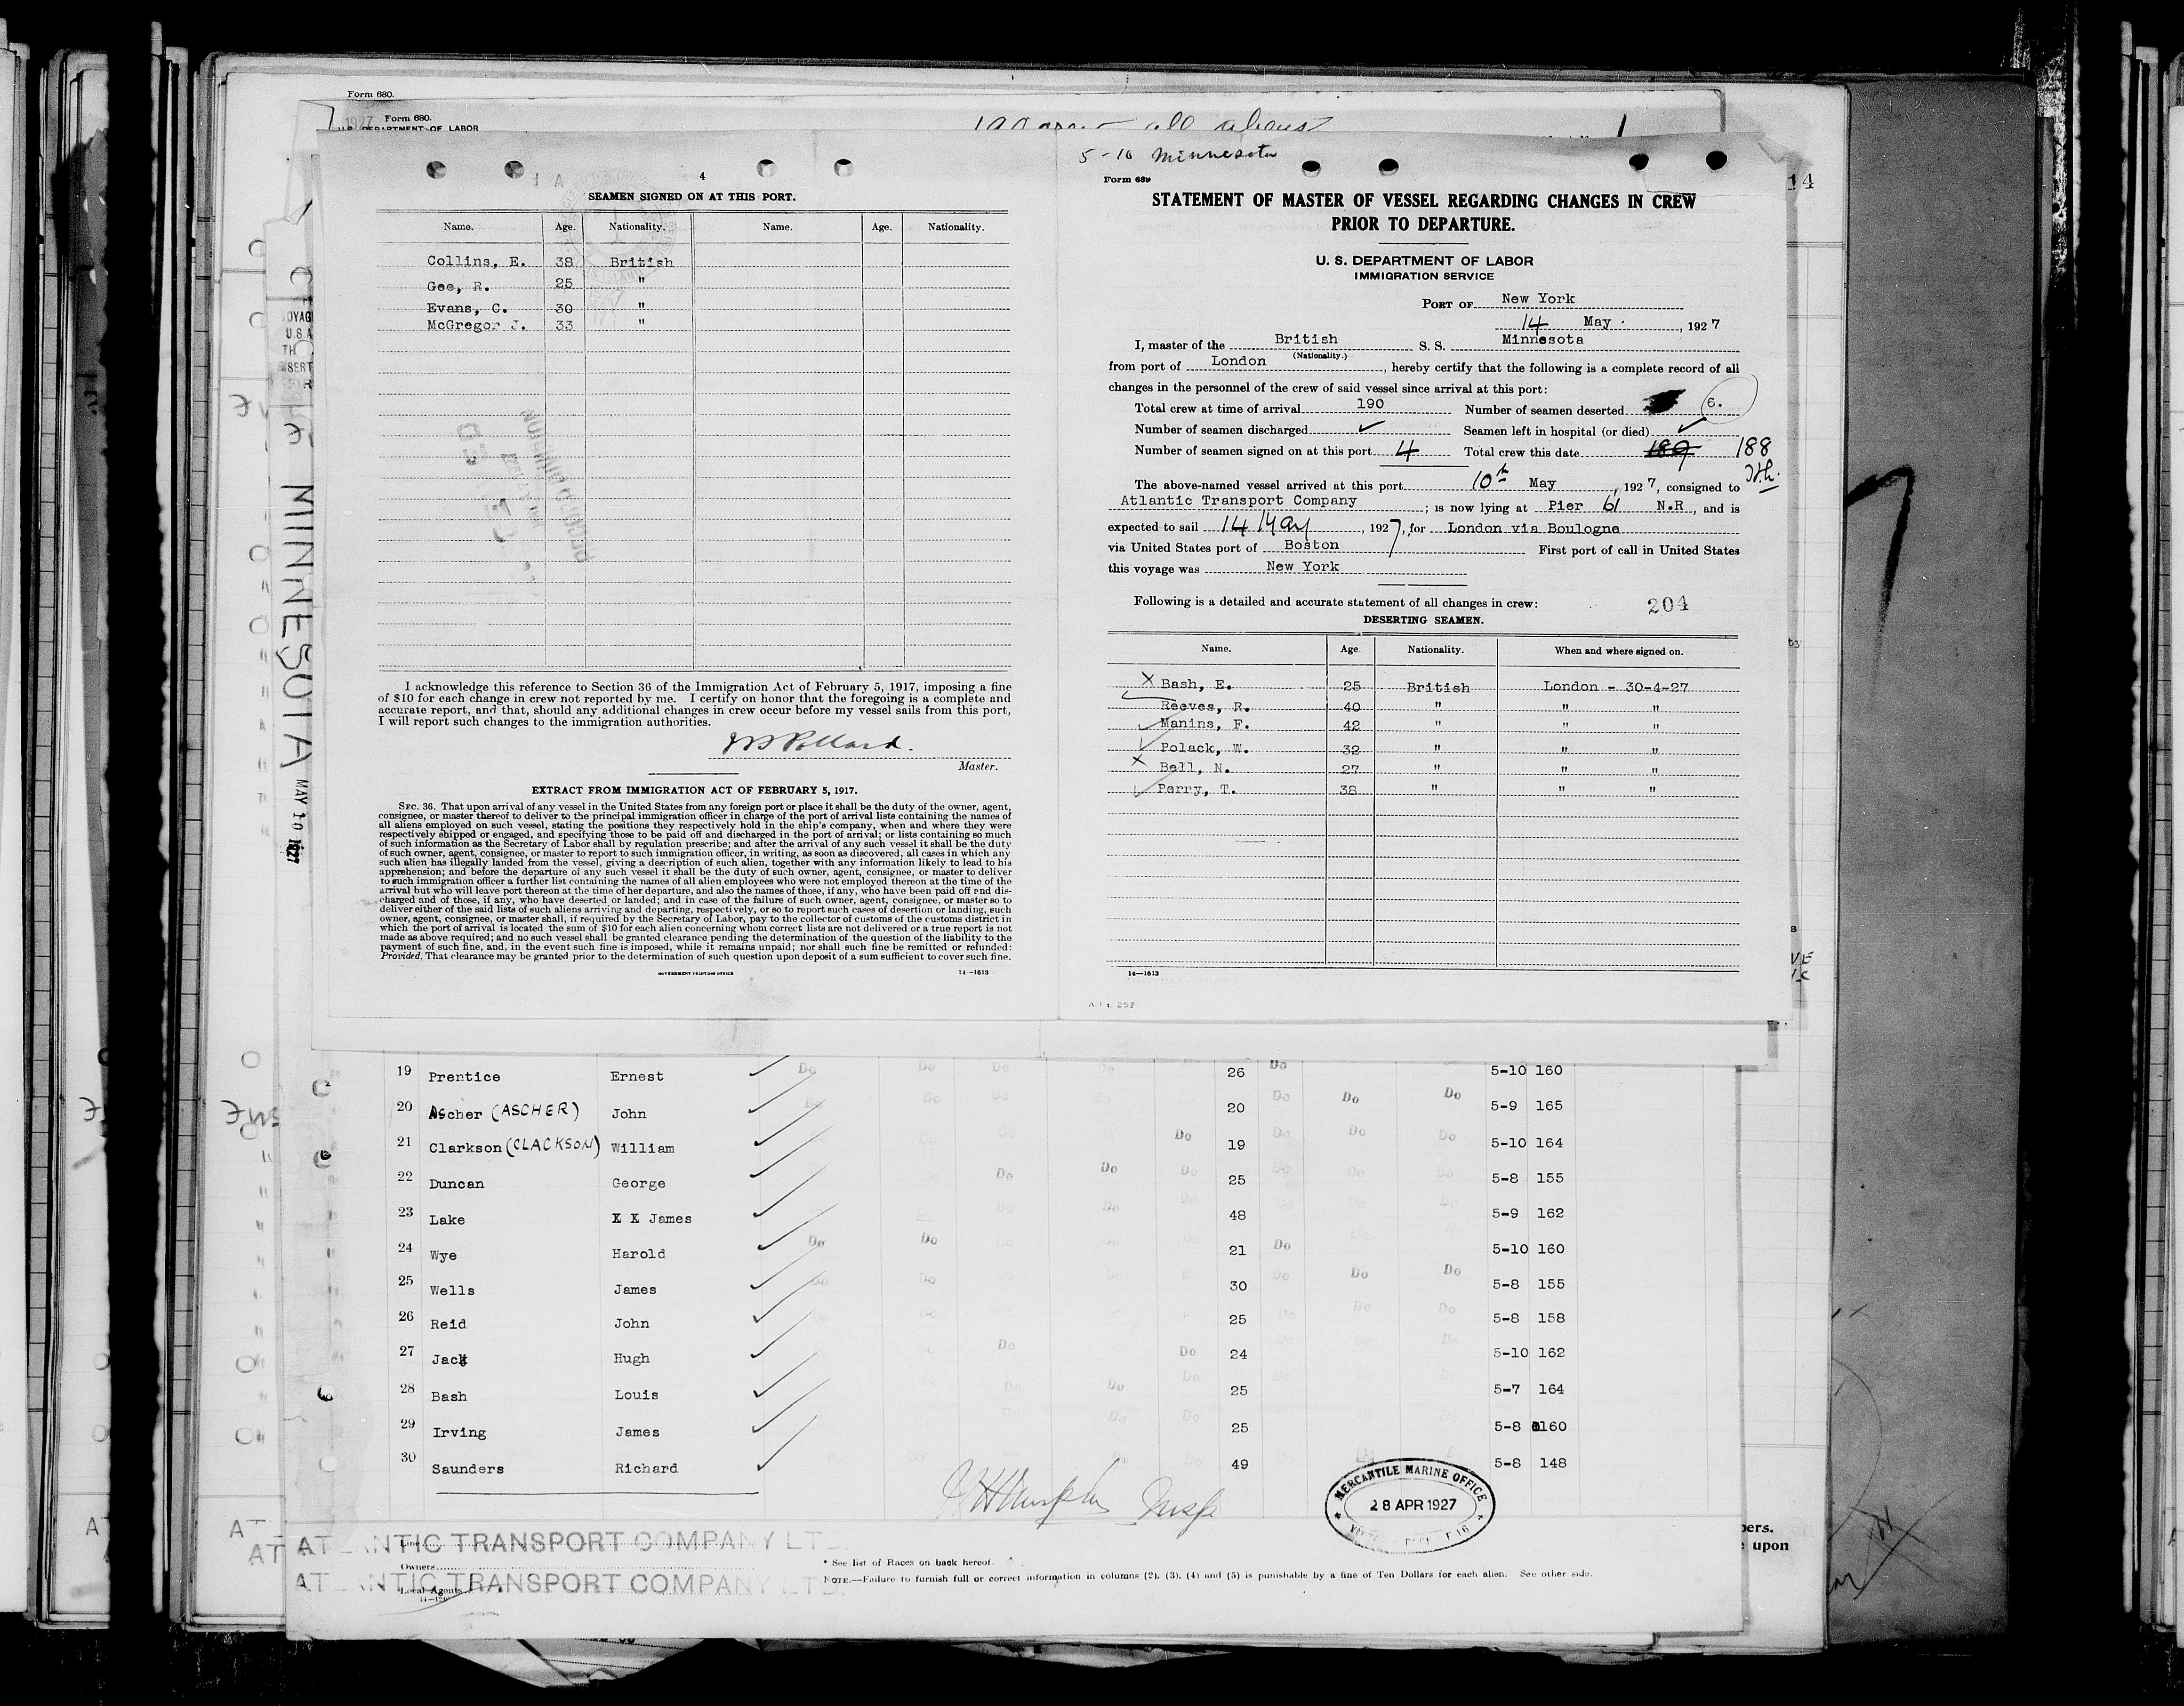 Form 680.
1927
Form 680.
U.S. DEPARTMENT OF LABOR
all aliens
14
4
SEAMEN SIGNED ON AT THIS PORT.
Name. Age. Nationality. Name. Age. Nationality.
Collins, E. 38 British
Gee, R. 25 "
Evans, C. 30 "
McGregor J. 33 "
I acknowledge this reference to Section 36 of the Immigration Act of February 5, 1917, imposing a fine
of $10 for each change in crew not reported by me. I certify on honor that the foregoing is a complete and
accurate report, and that, should any additional changes in crew occur before my vessel sails from this port,
I will report such changes to the immigration authorities.
Pollard.
Master.
EXTRACT FROM IMMIGRATION ACT OF FEBRUARY 5, 1917.
SEC. 36. That upon arrival of any vessel in the United States from any foreign port or place it shall be the duty of the owner, agent,
consignee, or master thereof to deliver to the principal immigration officer in charge of the port of arrival lists containing the names of
all aliens employed on such vessel, stating the positions they respectively hold in the ship's company, when and where they were
respectively shipped or engaged, and specifying those to be paid off and discharged in the port of arrival; or lists containing so much
of such information as the Secretary of Labor shall by regulation prescribe; and after the arrival of any such vessel it shall be the duty
of such owner, agent, consignee, or master to report to such immigration officer, in writing, as soon as discovered, all cases in which any
such alien has illegally landed from the vessel, giving a description of such alien, together with any information likely to lead to his
apprehension; and before the departure of any such vessel it shall be the duty of such owner, agent, consignee, or master to deliver
to such immigration officer a further list containing the names of all alien employees who were not employed thereon at the time of the
arrival but who will leave port thereon at the time of her departure, and also the names of those, if any, who have been paid off and dis-
charged and of those, if any, who have deserted or landed; and in case of the failure of such owner, agent, consignee, or master so to
deliver either of the said lists of such aliens arriving and departing, respectively, or so to report such cases of desertion or landing, such
owner, agent, consignee, or master shall, if required by the Secretary of Labor, pay to the collector of customs of the customs district in
which the port of arrival is located the sum of $10 for each alien concerning whom correct lists are not delivered or a true report is not
made as above required; and no such vessel shall be granted clearance pending the determination of the question of the liability to the
payment of such fine, and, in the event such fine is imposed, while it remains unpaid; nor shall such fine be remitted or refunded:
Provided, That clearance may be granted prior to the determination of such question upon deposit of a sum sufficient to cover such fine.
GOVERNMENT PRINTING OFFICE 14—1613
5-10 Minnesota
Form 689
STATEMENT OF MASTER OF VESSEL REGARDING CHANGES IN CREW
PRIOR TO DEPARTURE.
U. S. DEPARTMENT OF LABOR
IMMIGRATION SERVICE
PORT OF New York
14 May, 1927
I, master of the British S. S. Minnesota
(Nationality.)
from port of London, hereby certify that the following is a complete record of all
changes in the personnel of the crew of said vessel since arrival at this port:
Total crew at time of arrival 190 Number of seamen deserted 6.
Number of seamen discharged ✓ Seamen left in hospital (or died) ✓
Number of seamen signed on at this port 4 Total crew this date 189 188
The above-named vessel arrived at this port 10th May, 1927, consigned to
Atlantic Transport Company; is now lying at Pier 61 N.R, and is
expected to sail 14 May, 1927, for London via Boulogne
via United States port of Boston First port of call in United States
this voyage was New York
Following is a detailed and accurate statement of all changes in crew: 204
DESERTING SEAMEN.
Name. Age Nationality. When and where signed on.
X Bash, E. 25 British London - 30-4-27
Reeves, R. 40 " " "
Manins, F. 42 " " "
Polack, W. 32 " " "
X Bell, N. 27 " " "
Perry, T. 38 " " "
14—1613
MINNESOTA MAY 10 1927
19 Prentice Ernest Do Do Do Do 26 Do 5-10 160
20 Ascher (ASCHER) John 20 Do Do Do 5-9 165
21 Clarkson (CLACKSON) William Do 19 Do Do Do 5-10 164
22 Duncan George Do Do Do 25 5-8 155
23 Lake X X James 48 5-9 162
24 Wye Harold Do Do 21 Do 5-10 160
25 Wells James Do 30 Do Do 5-8 155
26 Reid John 25 Do 5-8 158
27 Jack Hugh Do Do 24 5-10 162
28 Bash Louis Do Do 25 5-7 164
29 Irving James 25 5-8 160
30 Saunders Richard 49 5-8 148
MERCANTILE MARINE OFFICE
28 APR 1927
ATLANTIC TRANSPORT COMPANY LTD.
Owners
ATLANTIC TRANSPORT COMPANY LTD.
Local Agents
* See list of Races on back hereof.
NOTE.—Failure to furnish full or correct information in columns (2), (3), (4) and (5) is punishable by a fine of Ten Dollars for each alien. See other side.
upon